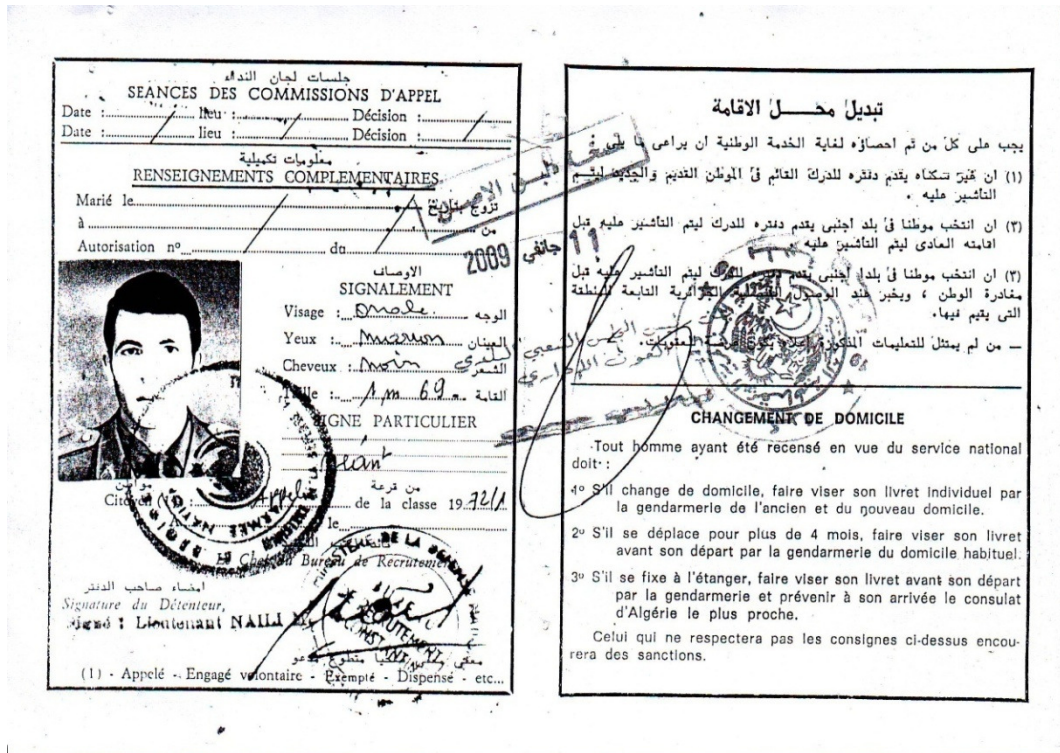 جلسات لجان النداء
SEANCES DES COMMISSIONS D'APPEL
Date : lieu : Décision :
Date : lieu : Décision :
معلومات تكميلية
RENSEIGNEMENTS COMPLEMENTAIRES
Marié le تزوج بتاريخ
à من
Autorisation nº du
الاوصاف
SIGNALEMENT
Visage : ovale الوجه
Yeux : marron العينان
Cheveux : noir الشعر
Taille : 1m 69 القامة
SIGNE PARTICULIER
Néant
مواطن من قرعة
Citoyen (1) : Appelé de la classe 1972/1
A le
Le Chef du Bureau de Recrutement
امضاء صاحب الدفتر
Signature du Détenteur,
Signé : Lieutenant NAILI
(1) - Appelé - Engagé volontaire - Exempté - Dispensé - etc...
MINISTERE DE LA DEFENSE
RECRUTEMENT
CONSTANTINE
نسخة طبق الاصل
11 جانفي 2009
تبديل محل الاقامة
يجب على كل من تم احصاؤه لغاية الخدمة الوطنية ان يراعى ما يلى :
(1) ان غير سكناه يقدم دفتره للدرك القائم فى الموطن القديم والجديد ليتم
التأشير عليه .
(٢) ان انتخب موطنا فى بلد اجنبى يقدم دفتره للدرك ليتم التأشير عليه قبل
اقامته العادى ليتم التأشير عليه
(٣) ان انتخب موطنا فى بلدا اجنبى يقدم دفتره للدرك ليتم التأشير عليه قبل
مغادرة الوطن ، ويخبر عند الوصول القنصلية الجزائرية التابعة للمنطقة
التى يقيم فيها.
— من لم يمتثل للتعليمات المذكورة اعلاه يكون عرضة للعقوبات.
CHANGEMENT DE DOMICILE
Tout homme ayant été recensé en vue du service national
doit :
1º S'il change de domicile, faire viser son livret individuel par
la gendarmerie de l'ancien et du nouveau domicile.
2º S'il se déplace pour plus de 4 mois, faire viser son livret
avant son départ par la gendarmerie du domicile habituel.
3º S'il se fixe à l'étanger, faire viser son livret avant son départ
par la gendarmerie et prévenir à son arrivée le consulat
d'Algérie le plus proche.
Celui qui ne respectera pas les consignes ci-dessus encou-
rera des sanctions.